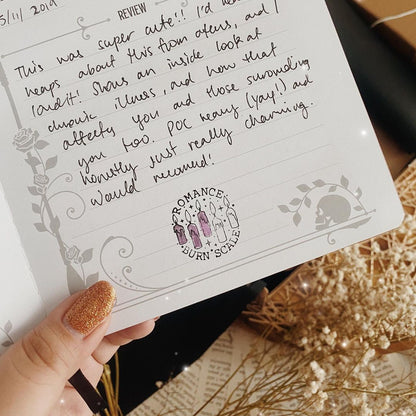 5/11/2019
REVIEW
This was super cute!! I'd heard
heaps about this from others, and I
loved it! Shows an inside look at
chronic illness, and how that
affects you and those surrounding
you too. POC heavy (yay!) and
honestly just really charming.
Would recommend!
ROMANCE
BURN SCALE